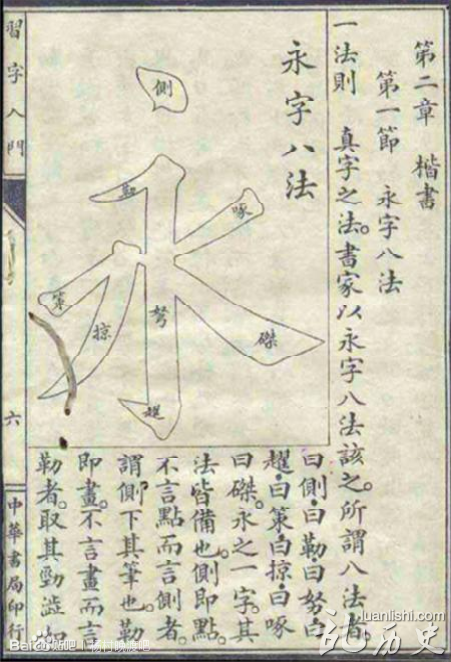 第二章 楷書
第一節 永字八法
一法則 真字之法。書家以永字八法該之。所謂八法者
永字八法
側
勒
啄
策
掠
努
磔
趯
曰側。曰勒。曰努。曰
趯。曰策。曰掠。曰啄
曰磔。永之一字。其
法皆備也。側即點。
不言點而言側者。
謂側下其筆也。勒
即畫。不言畫而言
勒者。取其勁澀如
習字入門
六
中華書局印行
luanlishi.com
乱历史
Bai 贴吧 | 杨村晚渡吧